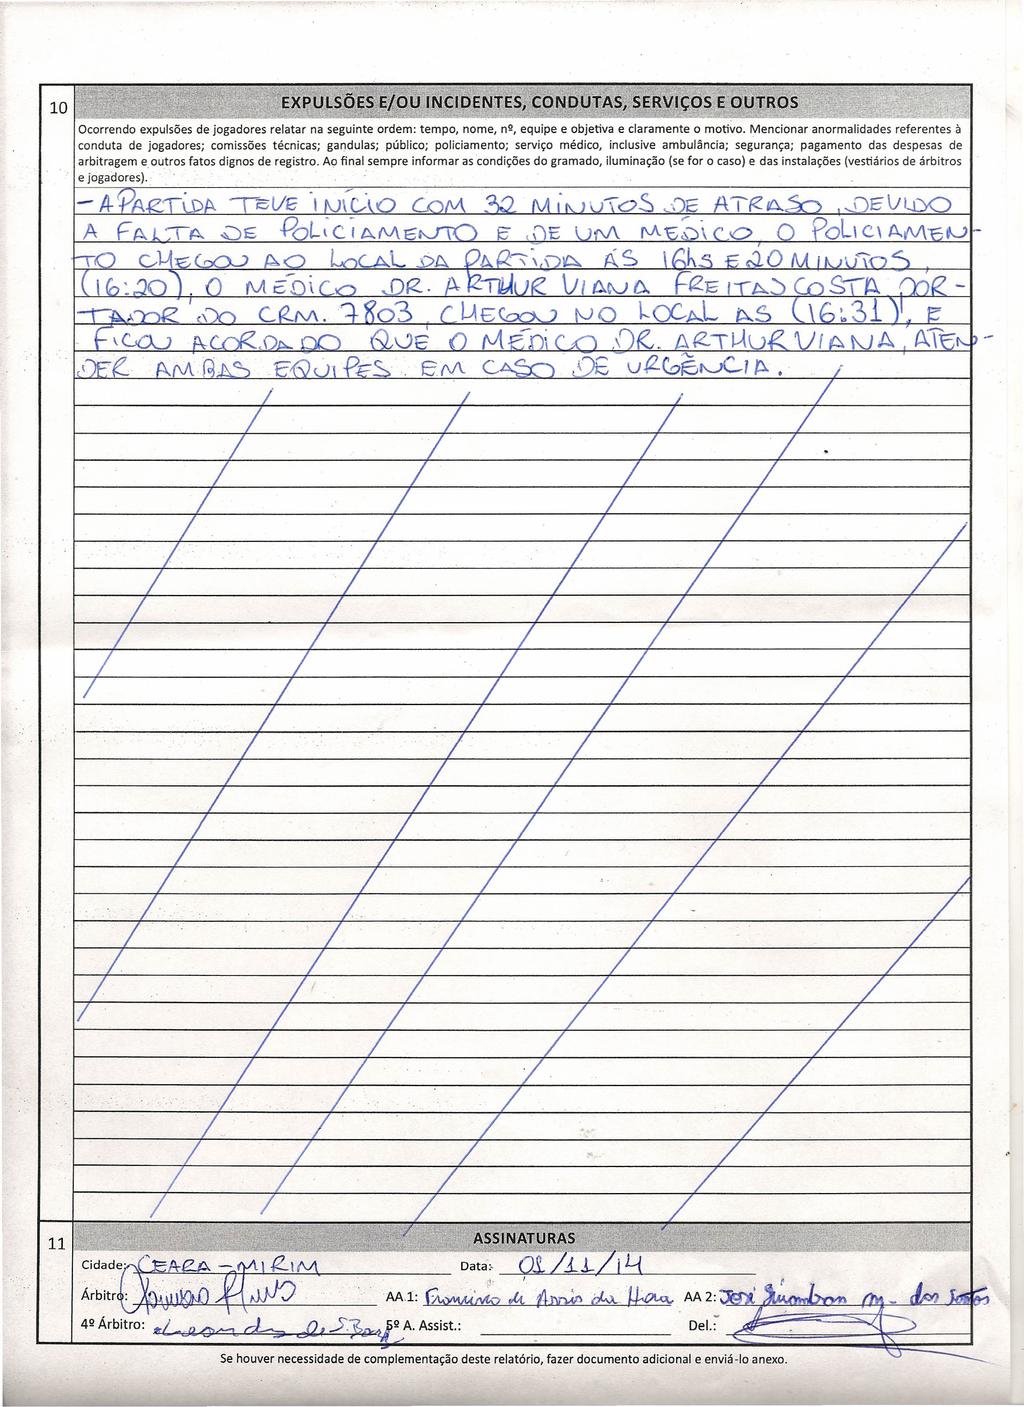 10
EXPULSÕES E/OU INCIDENTES, CONDUTAS, SERVIÇOS E OUTROS
Ocorrendo expulsões de jogadores relatar na seguinte ordem: tempo, nome, nº, equipe e objetiva e claramente o motivo. Mencionar anormalidades referentes à
conduta de jogadores; comissões técnicas; gandulas; público; policiamento; serviço médico, inclusive ambulância; segurança; pagamento das despesas de
arbitragem e outros fatos dignos de registro. Ao final sempre informar as condições do gramado, iluminação (se for o caso) e das instalações (vestiários de árbitros
e jogadores).
- A PARTIDA TEVE INÍCIO COM 32 MINUTOS DE ATRASO, DEVIDO
A FALTA DE POLICIAMENTO E DE UM MÉDICO, O POLICIAMEN-
TO CHEGOU AO LOCAL DA PARTIDA ÁS 16hs E 20 MINUTOS,
(16:20), O MÉDICO DR. ARTHUR VIANA FREITAS COSTA POR-
TADOR DO CRM. 7803, CHEGOU NO LOCAL AS (16:31), E
FICOU ACORDADO QUE O MÉDICO DR. ARTHUR VIANA, ATEN-
DER AMBAS EQUIPES EM CASO DE URGÊNCIA.
11
ASSINATURAS
Cidade: CEARA-MIRIM Data: 01/11/14
Árbitro: AA 1: Francisco de Assis da Hora AA 2: José M. dos Santos
4º Árbitro: 5º A. Assist.: Del.:
Se houver necessidade de complementação deste relatório, fazer documento adicional e enviá-lo anexo.